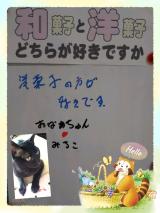 和菓子と洋菓子
どちらが好きですか
洋菓子の方が
好きです
おなかちゃん
みるこ
Hello